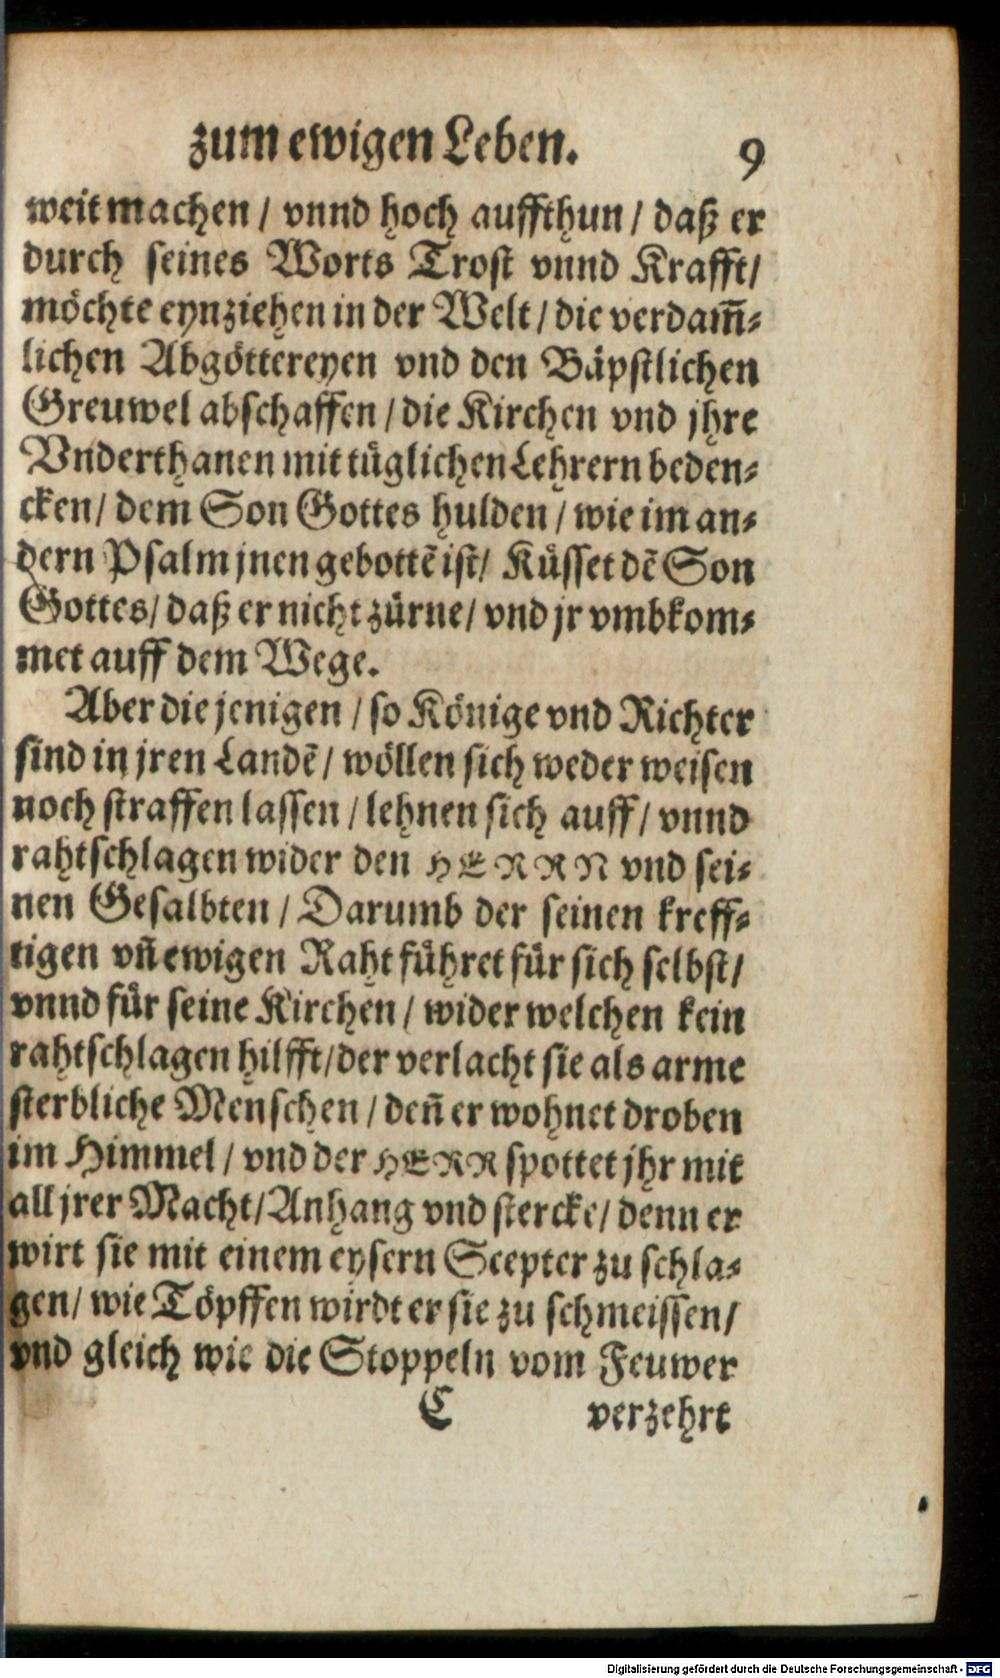 zum ewigen Leben. 9
weit machen / vnnd hoch auffthun / daß er
durch seines Worts Trost vnnd Krafft /
möchte eynziehen in der Welt / die verdam̄-
lichen Abgöttereyen vnd den Bäpstlichen
Greuwel abschaffen / die Kirchen vnd jhre
Vnderthanen mit tüglichen Lehrern beden-
cken / dem Son Gottes hulden / wie im an-
dern Psalm jnen gebottẽ ist / Küsset dẽ Son
Gottes / daß er nicht zürne / vnd jr vmbkom-
met auff dem Wege.
Aber die jenigen / so Könige vnd Richter
sind in jren Landẽ / wöllen sich weder weisen
noch straffen lassen / lehnen sich auff / vnnd
rahtschlagen wider den HERRN vnd sei-
nen Gesalbten / Darumb der seinen kreff-
tigen vñ ewigen Raht führet für sich selbst /
vnnd für seine Kirchen / wider welchen kein
rahtschlagen hilfft / der verlacht sie als arme
sterbliche Menschen / deñ er wohnet droben
im Himmel / vnd der HERR spottet jhr mit
all jrer Macht / Anhang vnd stercke / denn er
wirt sie mit einem eysern Scepter zu schla-
gen / wie Töpffen wirdt er sie zu schmeissen /
vnd gleich wie die Stoppeln vom Feuwer
C verzehrt
Digitalisierung gefördert durch die Deutsche Forschungsgemeinschaft - DFG